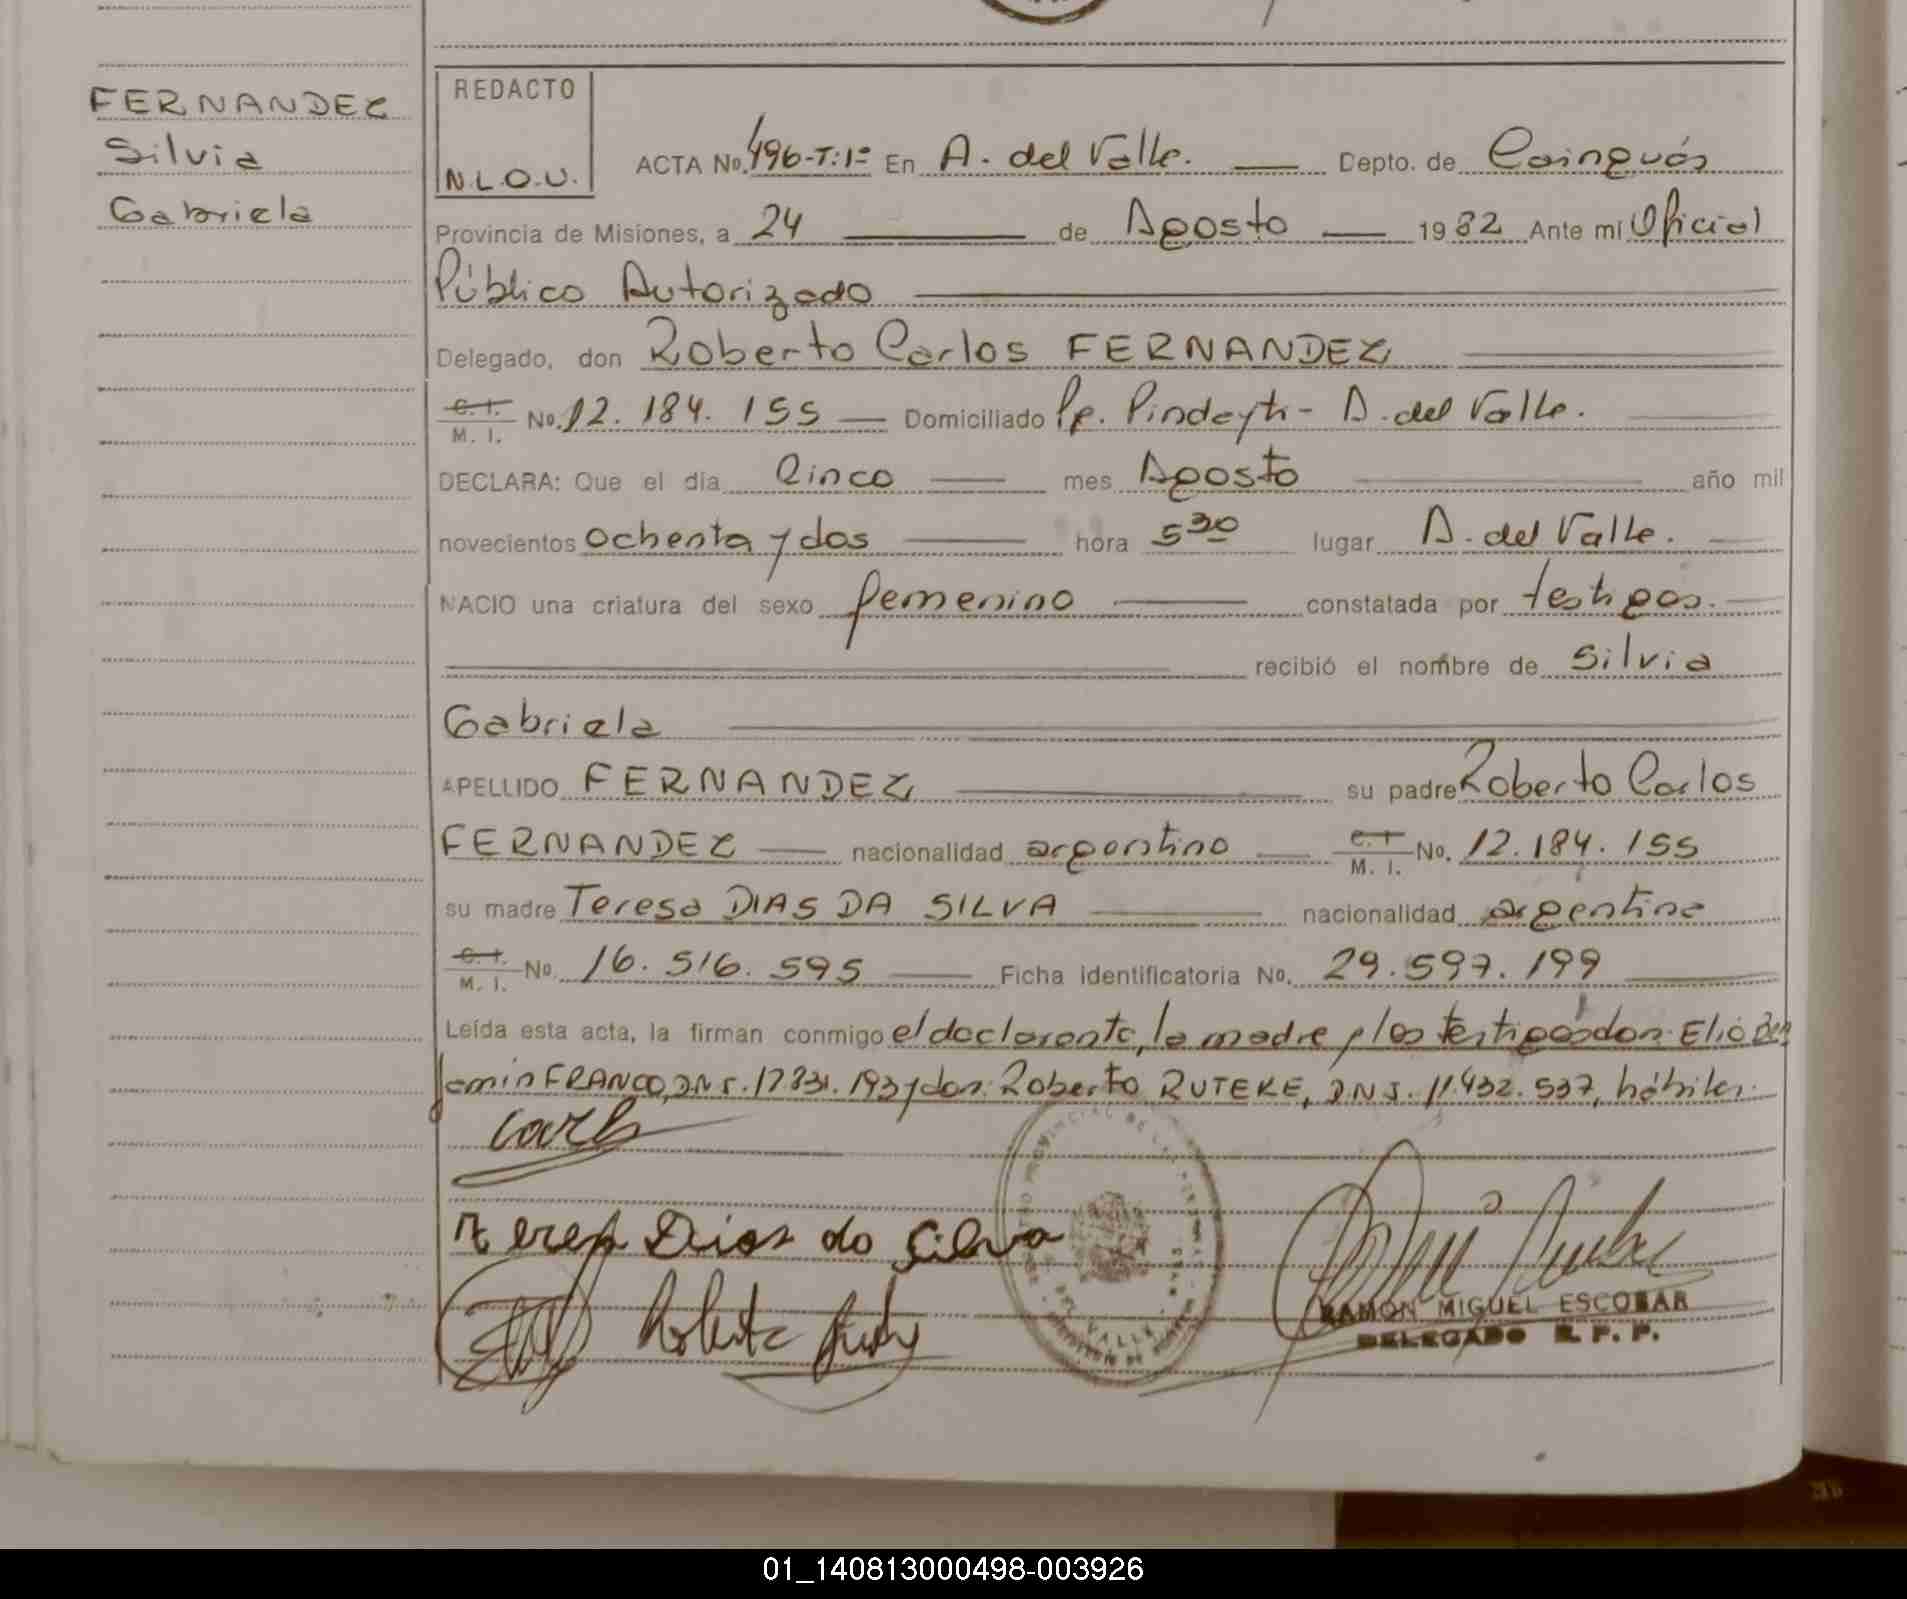 FERNANDEZ
Silvia
Gabriela
REDACTO
N.L.O.U.
ACTA No. 496-T:1º En A. del Valle. Depto. de Cainguás
Provincia de Misiones, a 24 de Agosto 1982 Ante mi Oficial
Público Autorizado
Delegado, don Roberto Carlos FERNANDEZ
C. I. M. I. No. 12.184.155 Domiciliado Pje. Pindayti - A. del Valle.
DECLARA: Que el día Cinco mes Agosto año mil
novecientos ochenta y dos hora 5 30 lugar A. del Valle.
NACIO una criatura del sexo femenino constatada por testigos.
recibió el nombre de Silvia
Gabriela
APELLIDO FERNANDEZ su padre Roberto Carlos
FERNANDEZ nacionalidad argentino C. I. M. I. No. 12.184.155
su madre Teresa DIAS DA SILVA nacionalidad argentina
C. I. M. I. No. 16.516.595 Ficha identificatoria No. 29.597.199
Leída esta acta, la firman conmigo el declarante, la madre y los testigos don: Elio Ben
jamin FRANCO, D.N.I. 17.831.193 y don: Roberto RUTEKE, D.N.I. 11.432.537, hábiles.
Carlos
Teresa Dias da Silva
Roberto
DEL VALLE
RAMON MIGUEL ESCOBAR
DELEGADO R. P. P.
01_140813000498-003926